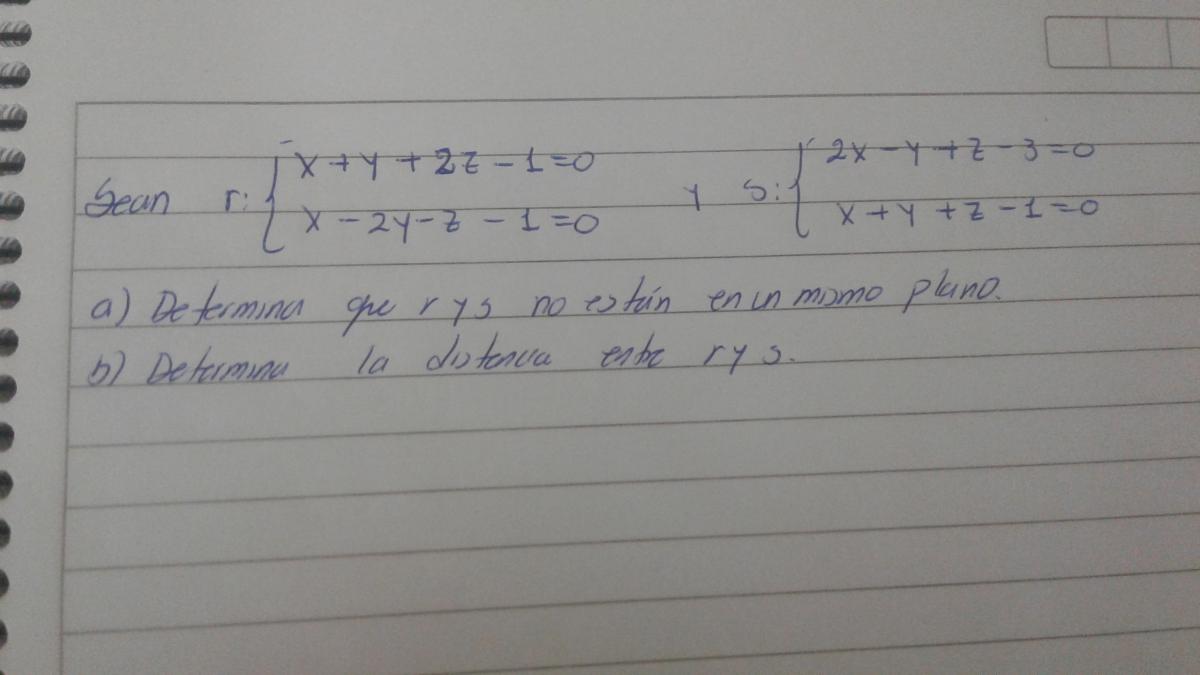 Sean r: { x + y + 2z - 1 = 0 y s: { 2x - y + z - 3 = 0
x - 2y - z - 1 = 0 x + y + z - 1 = 0
a) Determina que r y s no están en un mismo plano.
b) Determina la distancia entre r y s.